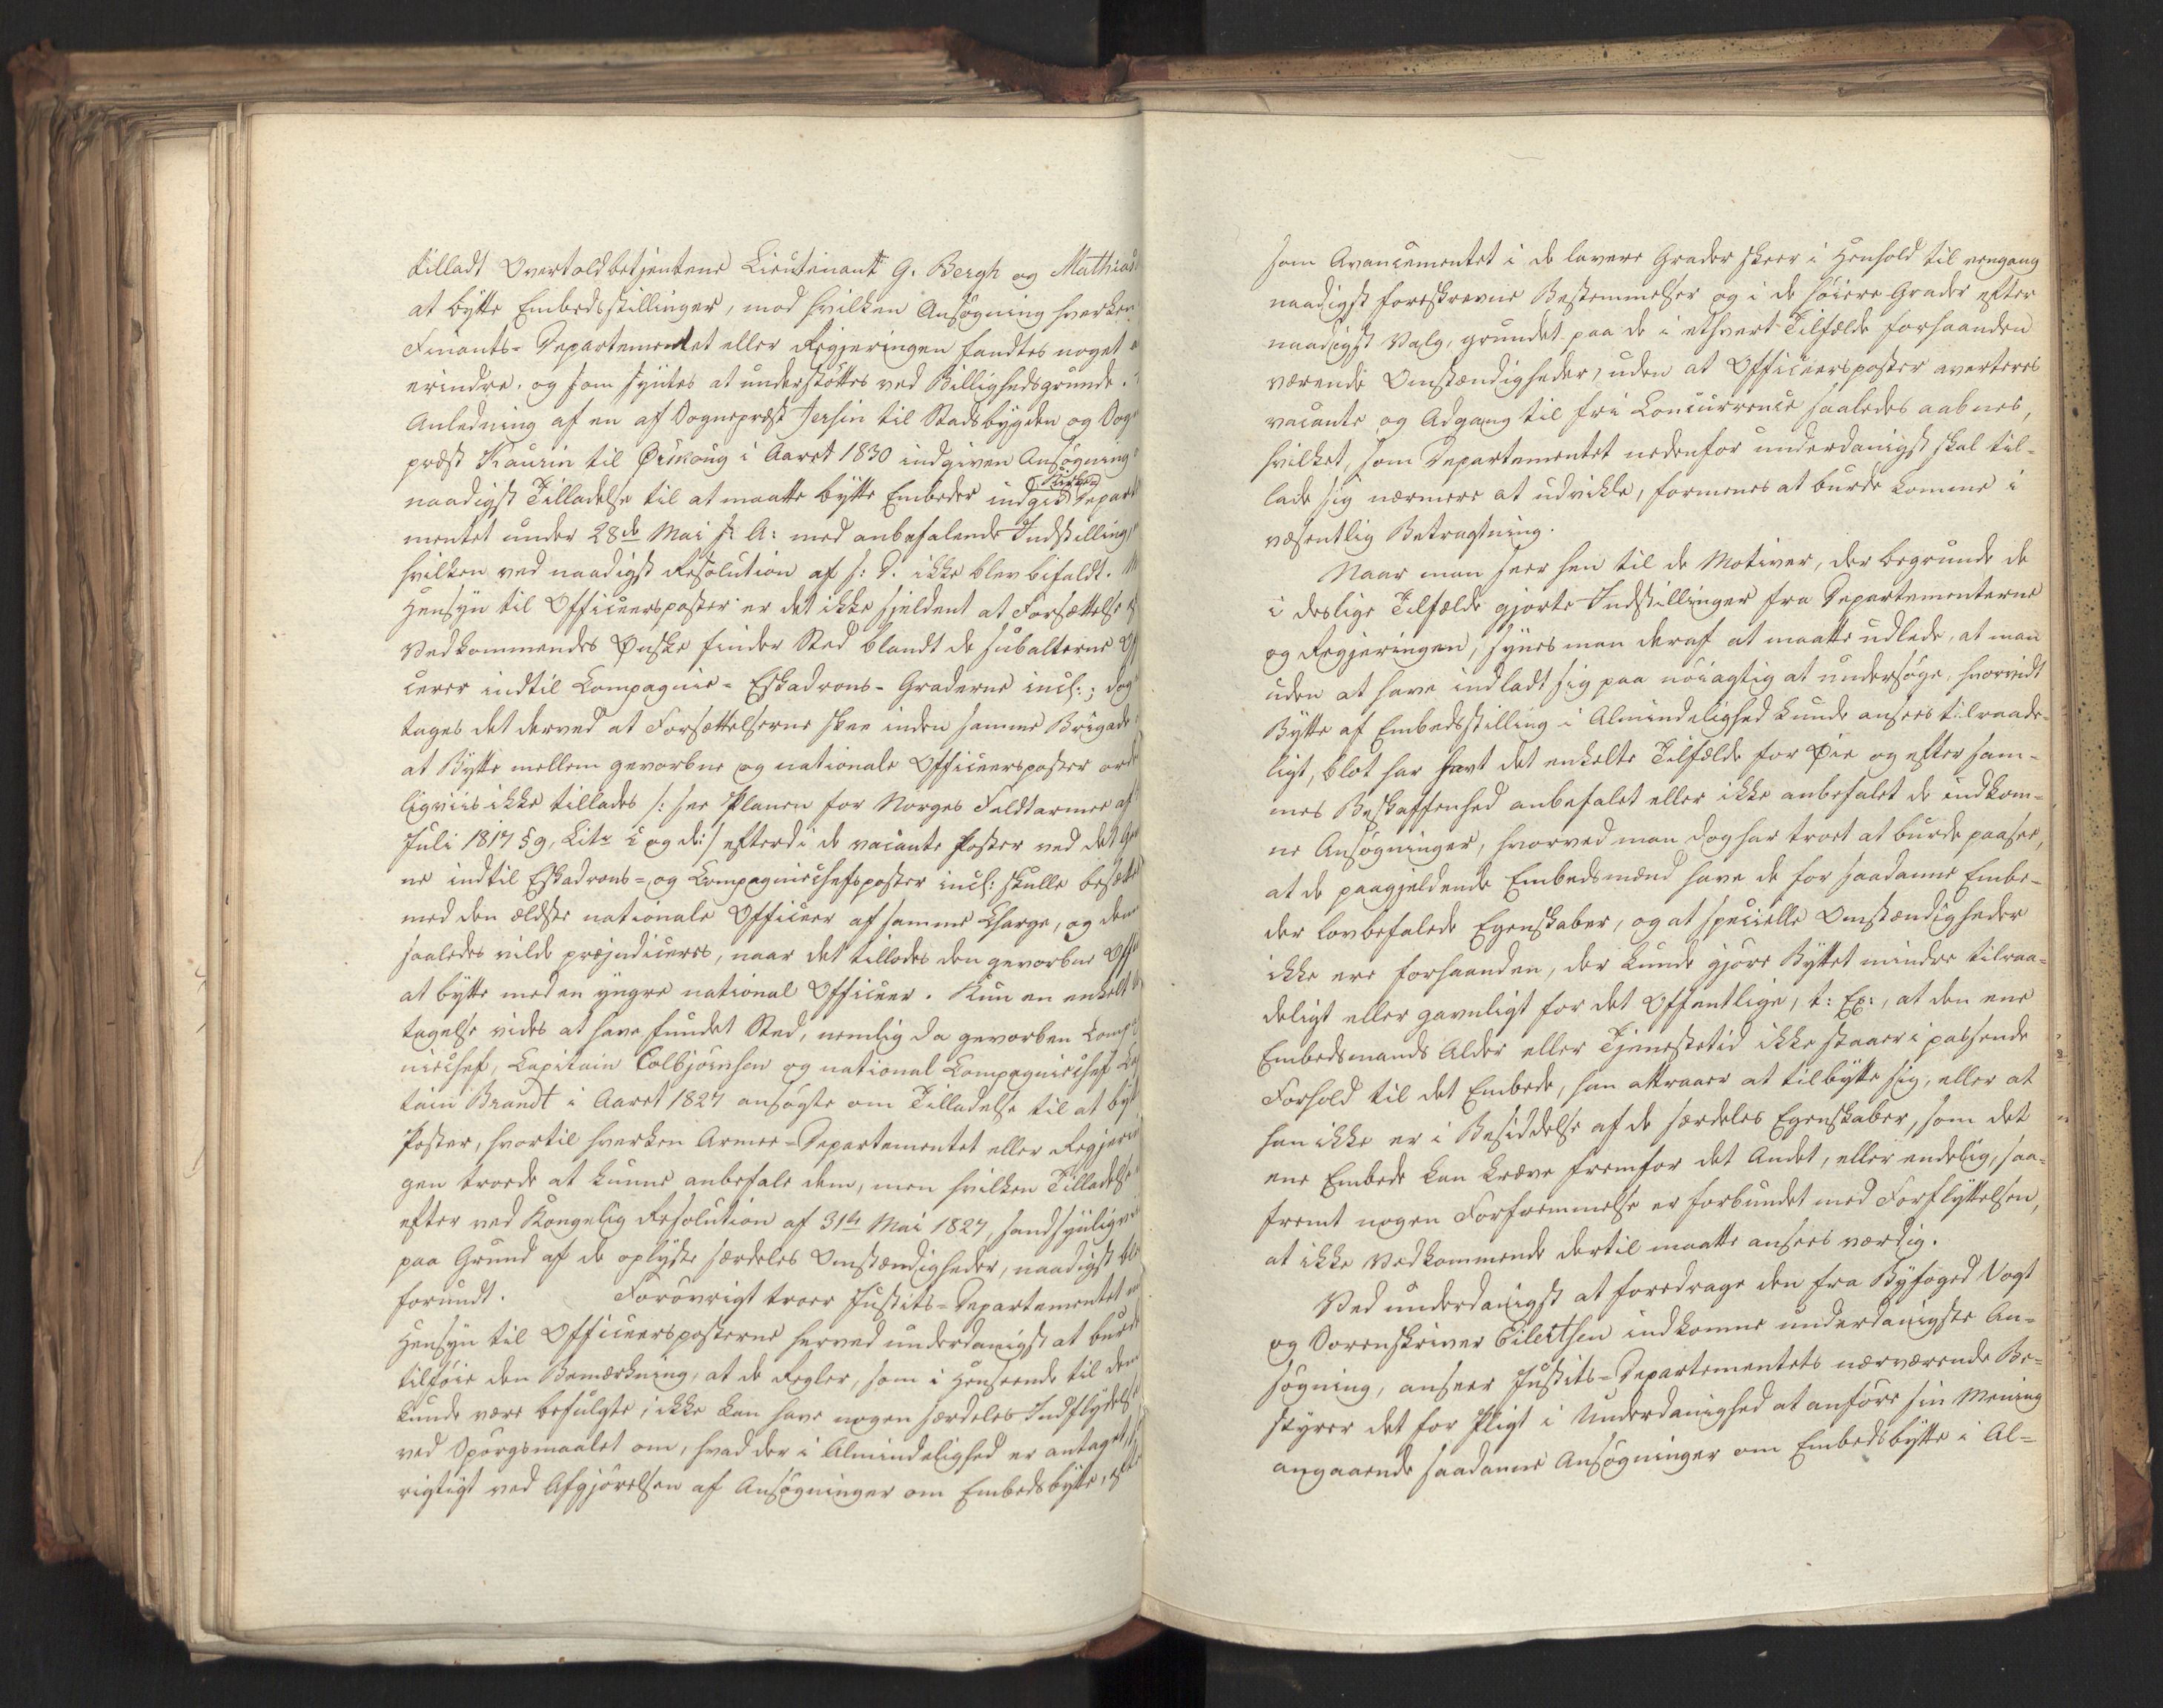 tilladt Overtoldbetjentene Lieutenant G. Bergh og Mathias
at bytte Embedsstillinger, mod hvilken Ansøgning hverken
Finants-Departementet eller Regjeringen fandtes noget
erindre, og som syntes at understøttes ved Billighedsgrunde.
Anledning af en af Sognepræst Jersin til Stadsbygden og Sog
præst Kaurin til Ørskoug i Aaret 1830 indgiven Ansøgning
naadigst Tilladelse til at maatte bytte Embeder indgik Kirke Depart
mentet under 28de Mai s: A: med anbefalende Indstilling,
hvilken ved naadigst Resolution af s: D. ikke blev bifaldt.
Hensyn til Officeersposter er det ikke sjeldent at Forsættelse
Vedkommendes Ønske finder Sted blandt de subalterne
cerer indtil Compagnie- Eskadrons-Graderne incl:; dog
tages det derved at Forsættelserne skee inden samme Brigade
at Bytte mellem gevorbne og nationale Officeersposter
ligviis ikke tillades /: see Planen for Norges Feldtarmee af
Juli 1817 § 9, Litr c og d:/ efterdi de vacante Poster ved det
ne indtil Eskadrons- og Compagniechefsposter incl: skulle besætte
med den ældste nationale Officeer af samme Charge, og denne
saaledes vilde præjudiceres, naar det tillodes den gevorbne Off
at bytte med en yngre national Officeer. Kun en enkelt
tagelse vides at have fundet Sted, nemlig da gevorben Comp
niechef, Capitain Colbjørnsen og national Compagniechef
tain Brandt i Aaret 1827 ansøgte om Tilladelse til at byt
Poster, hvortil hverken Armee-Departementet eller Regjerin
gen troede at kunne anbefale dem, men hvilken Tilladelse
efter ved Kongelig Resolution af 31te Mai 1827, sandsynligv
paa Grund af de oplyste særdeles Omstændigheder, naadigst ble
forundt. Forøvrigt troer Justits-Departementet
Hensyn til Officeersposterne herved underdanigst at burde
tilføie den Bemærkning, at de Regler, som i Henseende til dem
kunde være befulgte, ikke kan have nogen særdeles Indflydelse
ved Spørgsmaalet om, hvad der i Almindelighed er antaget
rigtigt ved Afgjørelsen af Ansøgninger om Embedsbytte,
som Avancementet i de lavere Grader skeer i Henhold til eengang
naadigst foreskrevne Bestemmelser og i de høiere Grader efter
naadigst Valg, grundet paa de i ethvert Tilfælde forhaanden
værende Omstændigheder, uden at Officeersposter averteres
vacante og Adgang til fri Concurrence saaledes aabnes,
hvilket, som Departementet nedenfor underdanigst skal til-
lade sig nærmere at udvikle, formenes at burde komme i
væsentlig Betragtning.
Naar man seer hen til de Motiver, der begrunde de
i deslige Tilfælde gjorte Indstillinger fra Departementerne
og Regjeringen, synes man deraf at maatte udlede, at man
uden at have indladt sig paa nøiagtig at undersøge, hvorvidt
Bytte af Embedsstilling i Almindelighed kunde ansees tilraade-
ligt, blot har havt det enkelte Tilfælde for Øie og efter sam-
mes Beskaffenhed anbefalet eller ikke anbefalet de indkom-
ne Ansøgninger, hvorved man dog har troet at burde paasee,
at de paagjeldende Embedsmænd have de for saadanne Embe-
der lovbefalede Egenskaber, og at specielle Omstændigheder
ikke ere forhaanden, der kunde gjøre Byttet mindre tilraa-
deligt eller gavnligt for det Offentlige, t: Ex:, at den ene
Embedsmands Alder eller Tjenestetid ikke staaer i passende
Forhold til det Embede, han attraaer at tilbytte sig, eller at
han ikke er i Besiddelse af de særdeles Egenskaber, som det
ene Embede kan kræve fremfor det Andet, eller endelig, saa-
fremt nogen Forfremmelse er forbundet med Forflyttelsen,
at ikke Vedkommende dertil maatte ansees værdig.
Ved underdanigst at foredrage den fra Byfoged Vogt
og Sorenskriver Eilertsen indkomne underdanigste An-
søgning, anseer Justits-Departementets nærværende Be-
styrer det for Pligt i Underdanighed at anføre sin Mening
angaaende saadanne Ansøgninger om Embedsbytte i Al-